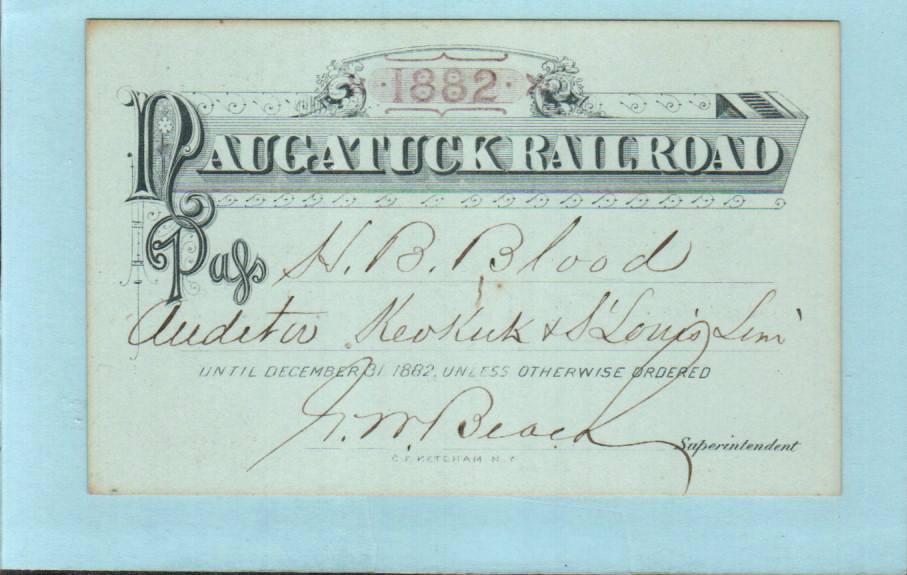 · 1882 ·
NAUGATUCK RAILROAD
Pass H. B. Blood
Auditor Keokuk & St Louis Line
UNTIL DECEMBER 31 1882, UNLESS OTHERWISE ORDERED
G. W. Beach
Superintendent
C. F. KETCHAM N.Y.